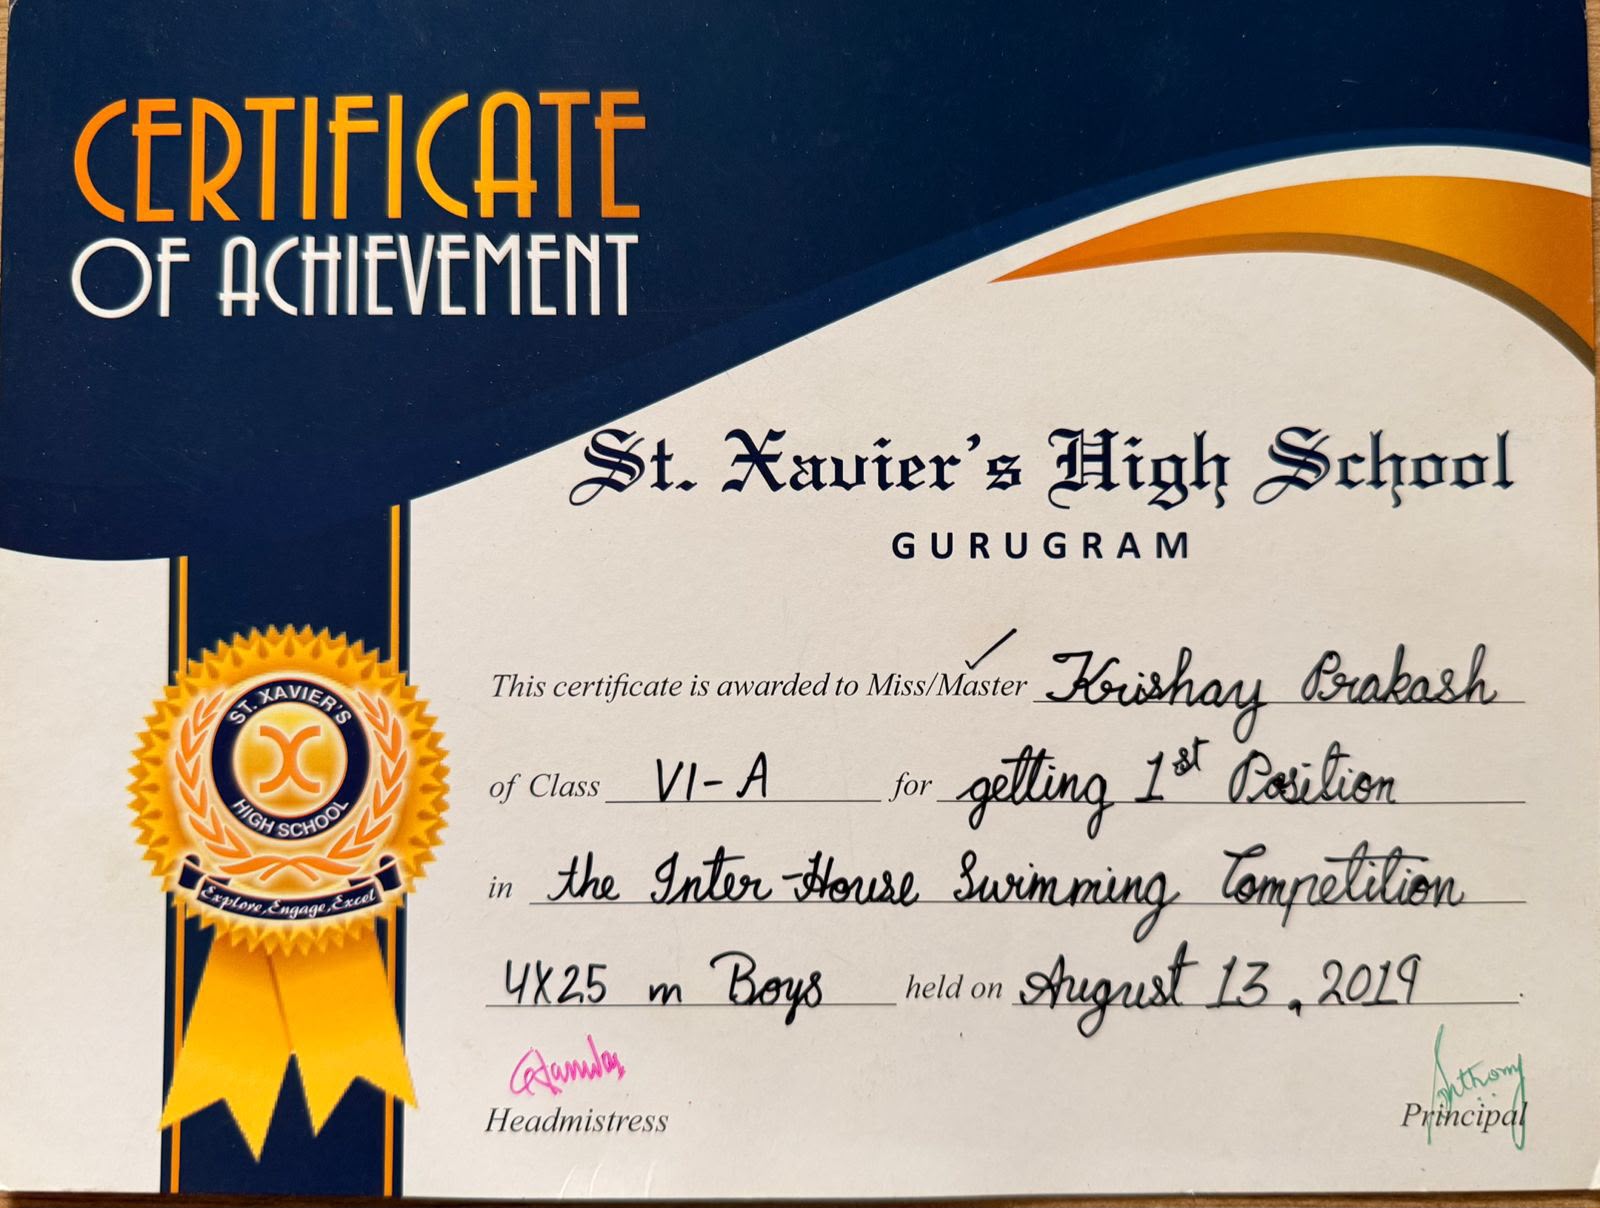 CERTIFICATE
OF ACHIEVEMENT
St. Xavier's High School
GURUGRAM
This certificate is awarded to Miss/Master Krishay Prakash
of Class VI-A for getting 1st Position
in the Inter-House Swimming Competition
4X25 m Boys held on August 13, 2019.
ST. XAVIER'S
HIGH SCHOOL
Explore, Engage, Excel
Anthony
Headmistress
Principal